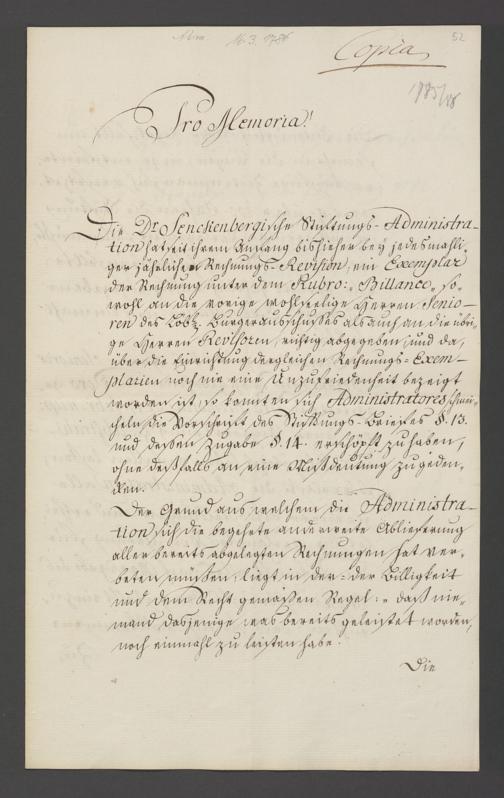 16. 3. 1786
52
Copia
1785/86
Pro Memoria!
Die Dr. Senckenbergische Stiftungs-Administra-
tion hat seit ihrem Anfang bishieher bey jedesmahli-
ger jährlichen Rechnungs-Revision, ein Exemplar
der Rechnung unter dem Rubro: „Billance„ so-
wohl an die vorige wohlseelige Herren Senio-
ren des Löbl. Burgerausschusses als auch an die übri-
ge Herren Revisoren, richtig abgegeben, und da,
über die Einrichtung dergleichen Rechnungs-Exem-
plarien noch nie eine Unzufriedenheit bezeigt
worden ist, so konnten sich Administratores schmei-
cheln, die Vorschrift des Stiftungs-Briefes §. 13.
und dessen Zugabe §. 14. erschöpft zu haben,
ohne deßfalls an eine Mißdeutung zu geden-
cken.
Der Grund aus welchem die Administra-
tion sich die begehrte anderweite Ablieferung
aller bereits abgelegten Rechnungen hat ver-
beten müßen: liegt in der: der Billigkeit
und dem Recht gemäßen Regel: „daß nie-
mand, dasjenige was bereits geleistet worden,
noch einmahl zu leisten habe.
Die